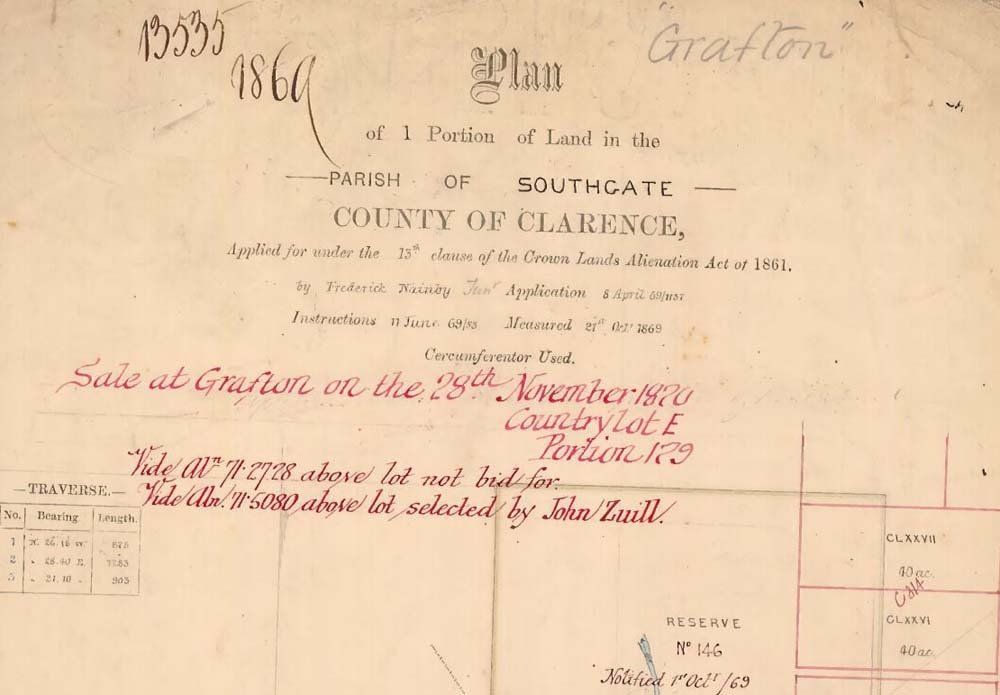 13535
1869
"Grafton"
Plan
of 1 Portion of Land in the
PARISH OF SOUTHGATE
COUNTY OF CLARENCE,
Applied for under the 13th clause of the Crown Lands Alienation Act of 1861.
by Frederick Nainby Junr Application 8 April 69/1157
Instructions 11 June 69/53 Measured 21st Octr 1869
Cercumferentor Used.
Sale at Grafton on the 28th November 1870
Country lot E
Portion 129
Vide Aln 71.2728 above lot not bid for.
Vide Aln. 71.5080 above lot selected by John Zuill.
TRAVERSE.
No. Bearing. Length.
1 675
2 28.40 E.
3 903
CLXXVII
40 ac.
CLXXVI
40 ac.
RESERVE
No 146
Notified 1st Octr /69